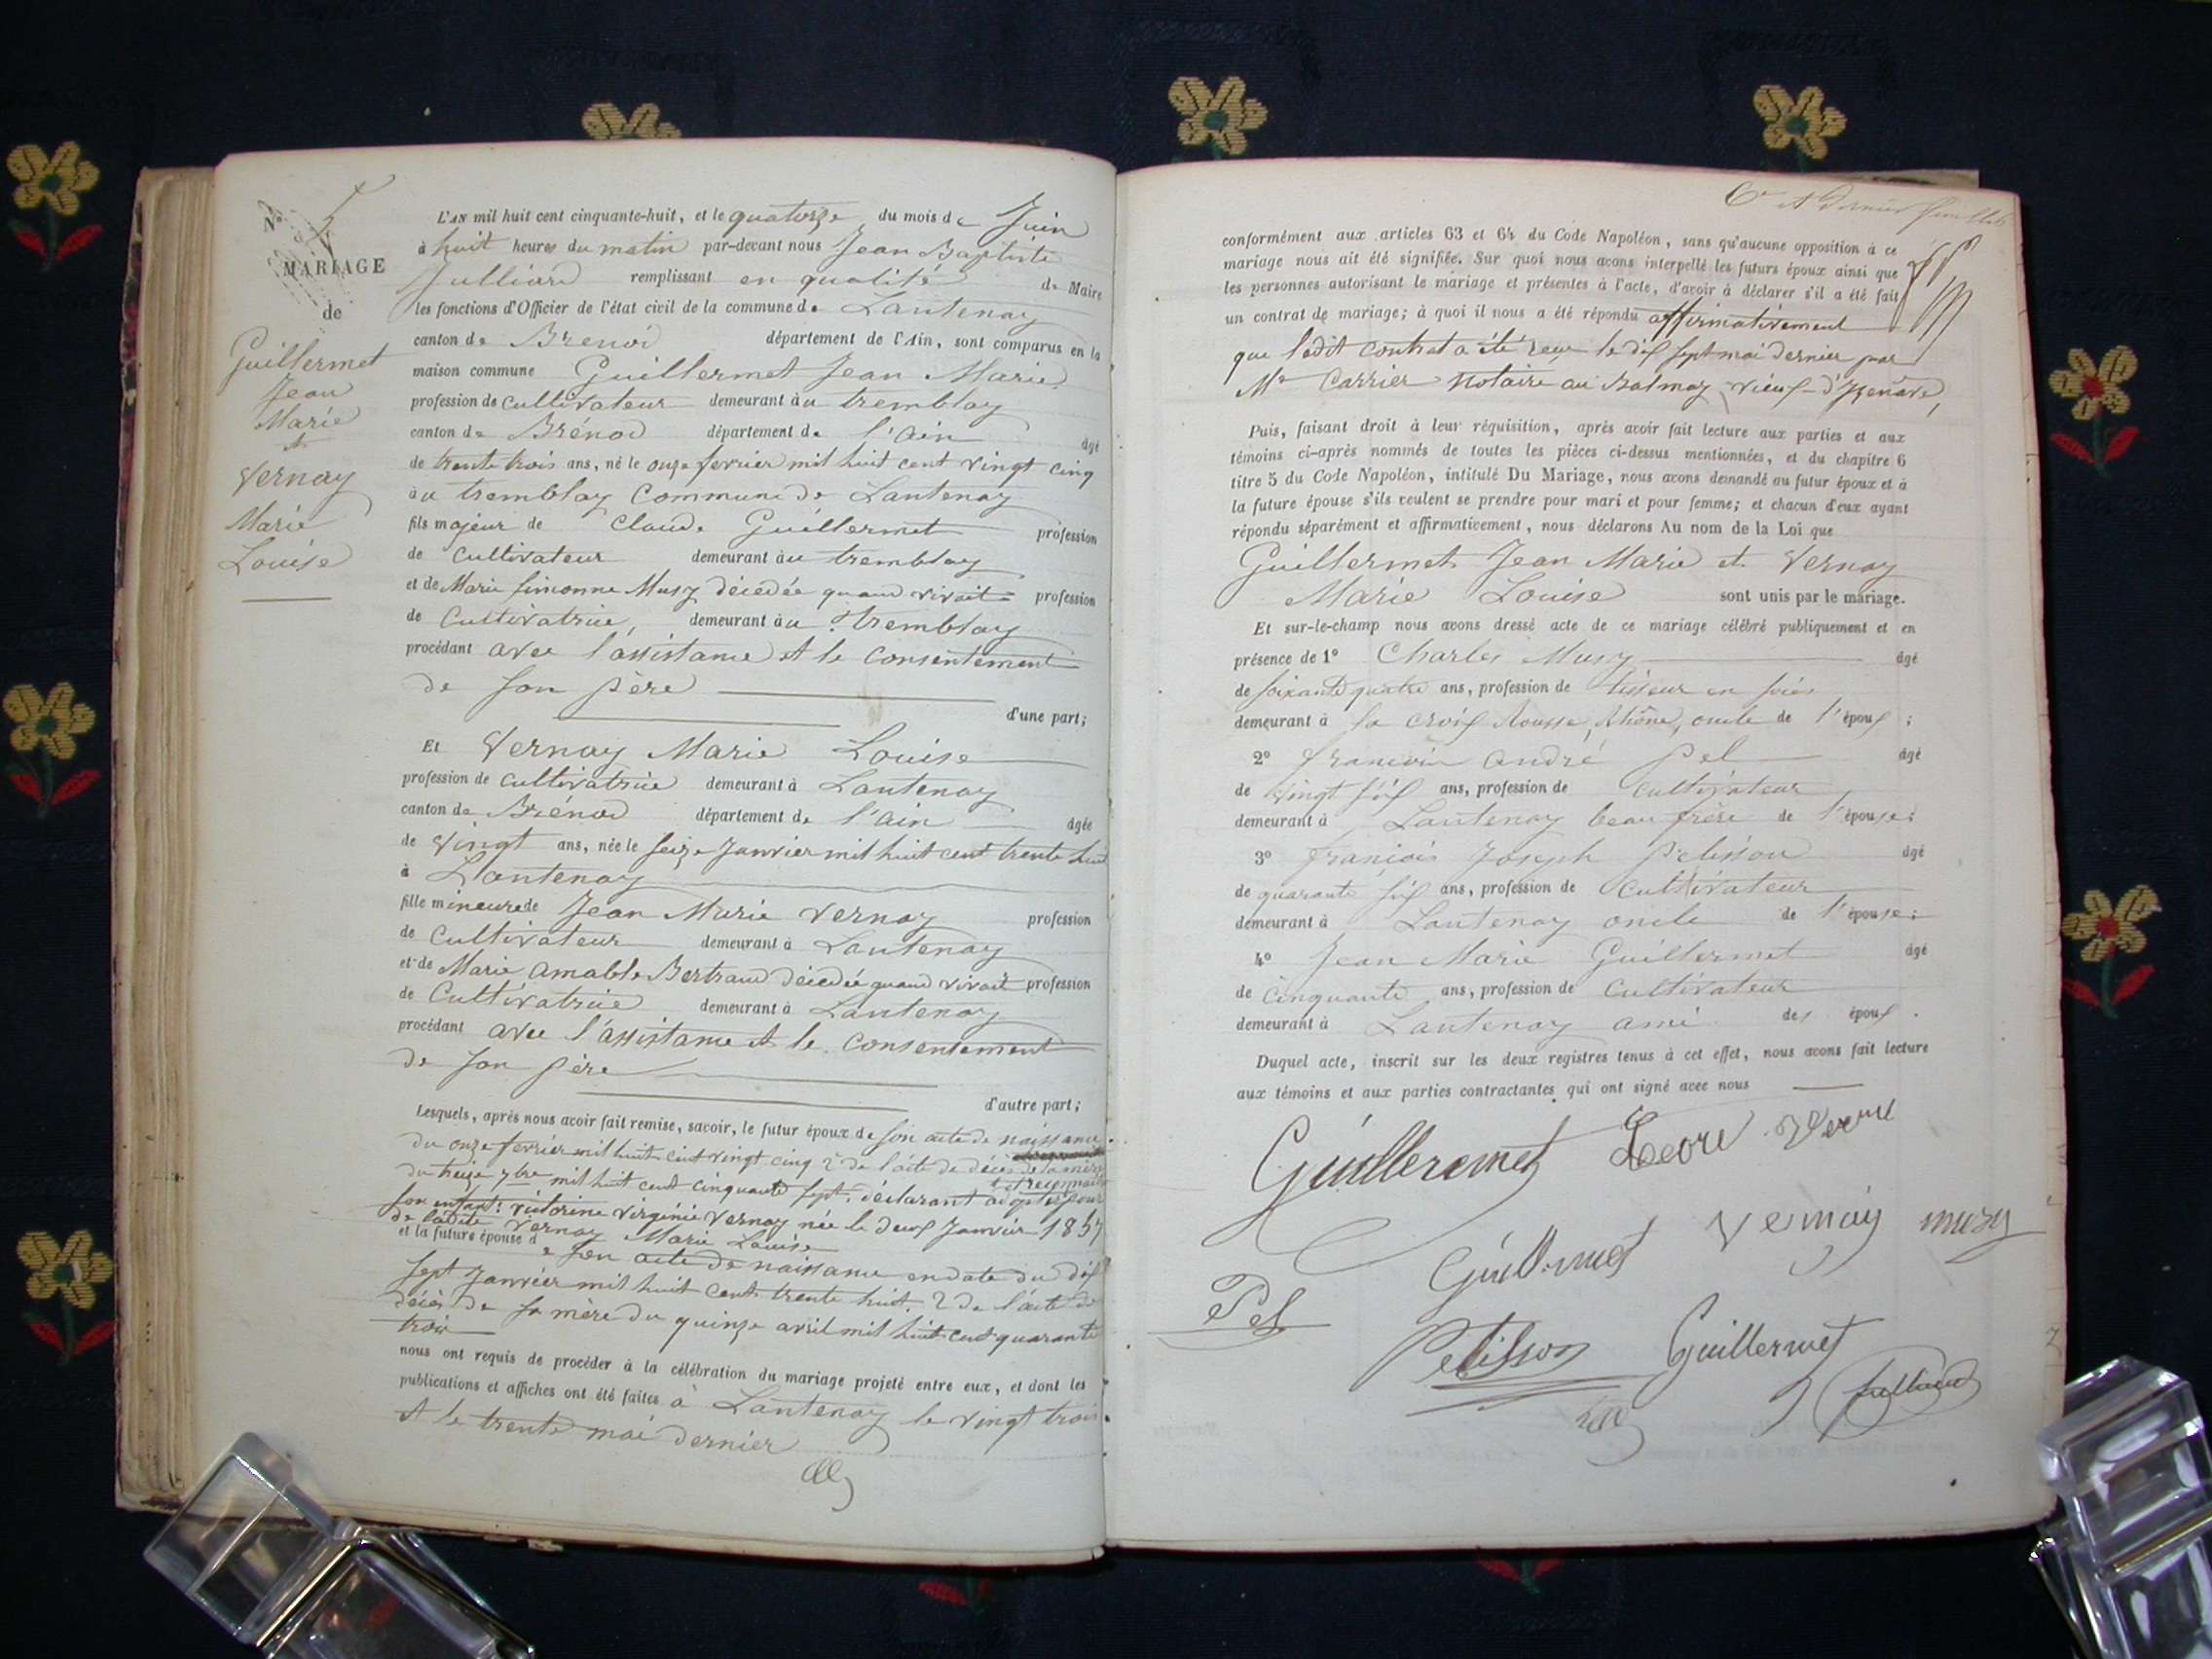 N° 5
MARIAGE
de
Guillermet
Jean
Marie
et
Vernay
Marie
Louise
L'AN mil huit cent cinquante-huit, et le quatorze du mois de Juin
à huit heures du matin par-devant nous Jean Baptiste
Julliard remplissant en qualité de Maire
les fonctions d'Officier de l'état civil de la commune de Lantenay
canton de Brenod département de l'Ain, sont comparus en la
maison commune Guillermet Jean Marie
profession de cultivateur demeurant àu tremblay
canton de Brénod département de l'ain âgé
de trente trois ans, né le onze fevrier mil huit cent vingt cinq
àu tremblay commune de Lantenay
fils majeur de Claude Guillermet profession
de cultivateur demeurant àu tremblay
et de Marie simonne Musy décedée quand vivait profession
de Cultivatrice, demeurant àu tremblay
procédant avec l'assistance et le consentement
de son père
d'une part;
Et Vernay Marie Louise
profession de cultivatrice demeurant à Lantenay
canton de Brénod département de l'ain âgée
de vingt ans, née le seize Janvier mil huit cent trente huit
à Lantenay
fille mineure de Jean Marie Vernay profession
de cultivateur demeurant à Lantenay
et de Marie amable Bertrand décedée quand vivait profession
de Cultivatrice demeurant à Lantenay
procédant avec l'assistance et le consentement
de son père
d'autre part;
Lesquels, après nous avoir fait remise, savoir, le futur époux de son acte de naissance
du onze fevrier mil huit cent vingt cinq 2° de l'acte de décès de sa mère
du treize 7bre mil huit cent cinquante sept. déclarant adopter et reconnaitre pour
son enfant: victorine virginie Vernay née le deux Janvier 1857
de ladite Vernay Marie Louise
et la future épouse de son acte de naissance en date du dix
sept Janvier mil huit cent trente huit. 2 de l'acte de
décès de sa mère du quinze avril mil huit cent quarante
trois
nous ont requis de procéder à la célébration du mariage projeté entre eux, et dont les
publications et affiches ont été faites à Lantenay le vingt trois
et le trente mai dernier
6e et dernier feuillet
conformément aux articles 63 et 64 du Code Napoléon, sans qu'aucune opposition à ce
mariage nous ait été signifiée. Sur quoi nous avons interpellé les futurs époux ainsi que
les personnes autorisant le mariage et présentes à l'acte, d'avoir à déclarer s'il a été fait
un contrat de mariage; à quoi il nous a été répondu affirmativement
que ledit contrat a été recu le dix sept mai dernier par
Me Carrier notaire au Balmay vieux d'Izenave,
Puis, faisant droit à leur réquisition, après avoir fait lecture aux parties et aux
témoins ci-après nommés de toutes les pièces ci-dessus mentionnées, et du chapitre 6
titre 5 du Code Napoléon, intitulé Du Mariage, nous avons demandé au futur époux et à
la future épouse s'ils veulent se prendre pour mari et pour femme; et chacun d'eux ayant
répondu séparément et affirmativement, nous déclarons Au nom de la Loi que
Guillermet Jean Marie et Vernay
Marie Louise sont unis par le mariage.
Et sur-le-champ nous avons dressé acte de ce mariage célébré publiquement et en
présence de 1° Charles Musy âgé
de soixante quatre ans, profession de tisseur en soies
demeurant à la croix Rousse, Rhône, oncle de l'époux ;
2° francois andré Pel âgé
de vingt six ans, profession de cultivateur
demeurant à Lantenay beau frère de l'épouse;
3° francois Joseph Pelisson âgé
de quarante six ans, profession de cultivateur
demeurant à Lantenay oncle de l'épouse;
4° Jean Marie Guillermet âgé
de cinquante ans, profession de cultivateur
demeurant à Lantenay ami des époux.
Duquel acte, inscrit sur les deux registres tenus à cet effet, nous avons fait lecture
aux témoins et aux parties contractantes qui ont signé avec nous
Guilleremet
Guillermet Vernay musy
Pel
Pelisson Guillermet
Julliard